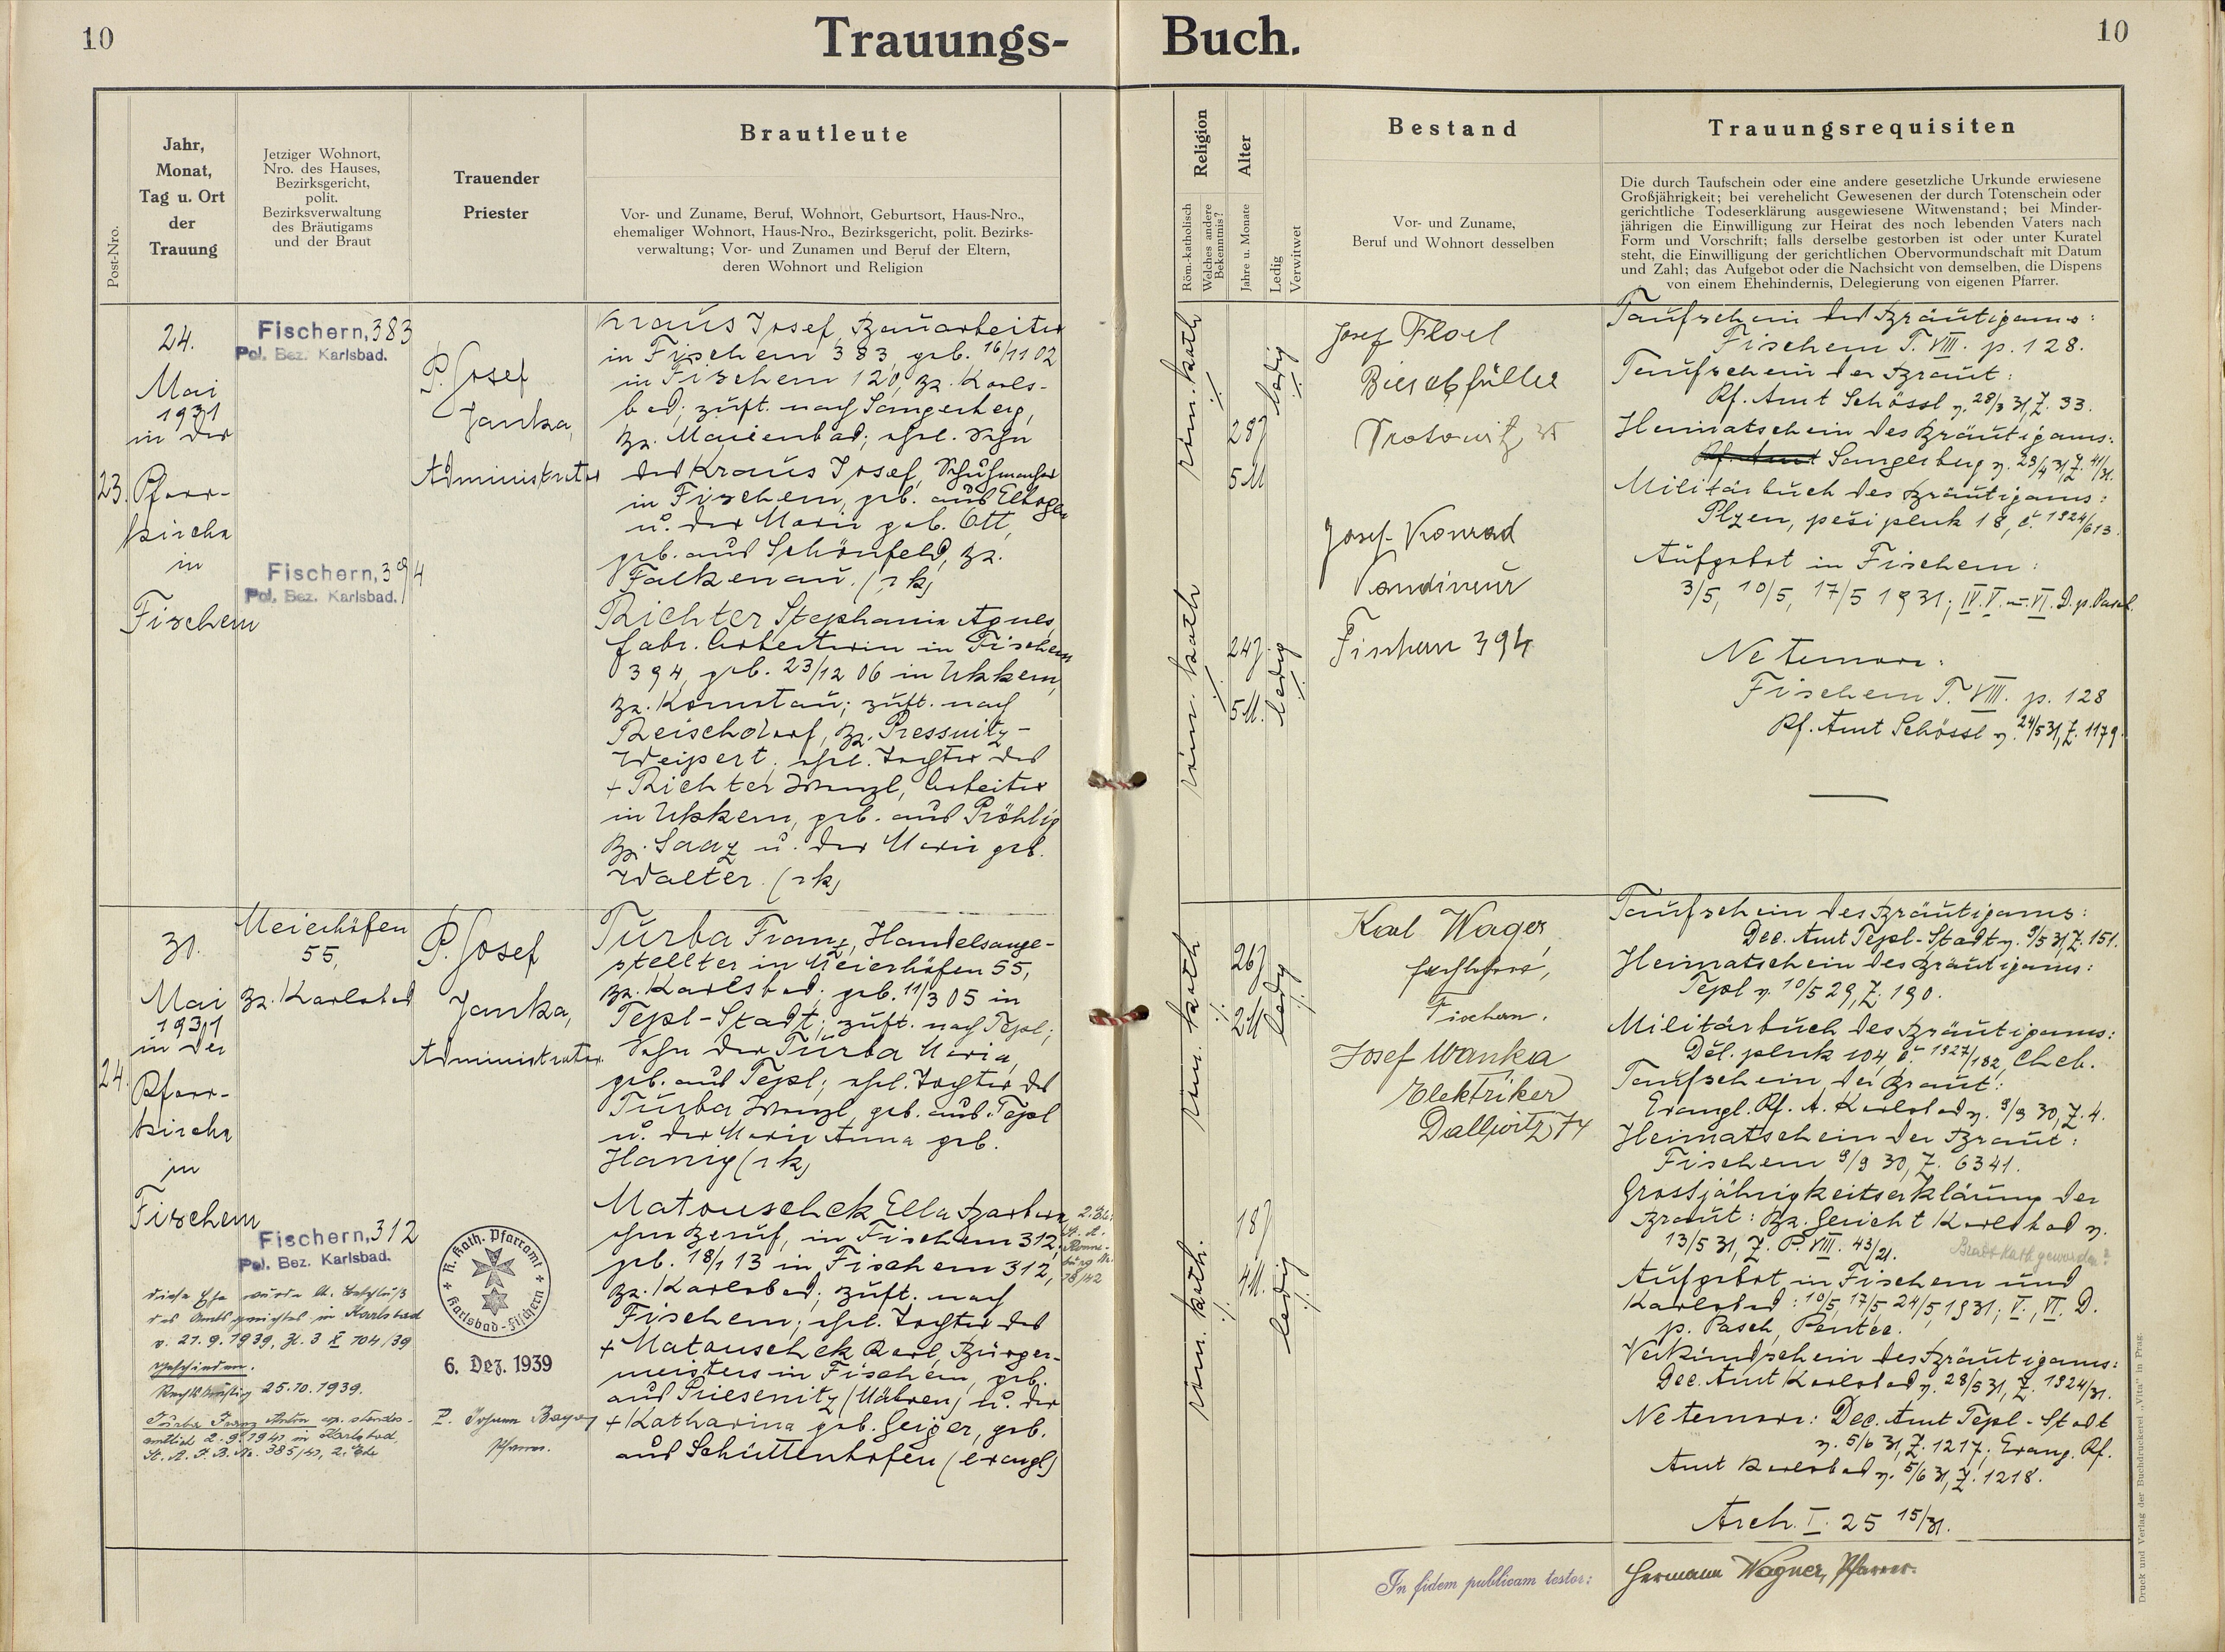 10
Trauungs-
Buch.
10
Post-Nro.
Jahr,
Monat,
Tag u. Ort
der
Trauung
Jetziger Wohnort,
Nro. des Hauses,
Bezirksgericht,
polit.
Bezirksverwaltung
des Bräutigams
und der Braut
Trauender
Priester
Brautleute
Vor- und Zuname, Beruf, Wohnort, Geburtsort, Haus-Nro.,
ehemaliger Wohnort, Haus-Nro., Bezirksgericht, polit. Bezirks-
verwaltung; Vor- und Zunamen und Beruf der Eltern,
deren Wohnort und Religion
Religion
Röm.-katholisch
Welches andere
Bekenntnis?
Alter
Jahre u. Monate
Ledig
Verwitwet
Bestand
Vor- und Zuname,
Beruf und Wohnort desselben
Trauungsrequisiten
Die durch Taufschein oder eine andere gesetzliche Urkunde erwiesene
Großjährigkeit; bei verehelicht Gewesenen der durch Totenschein oder
gerichtliche Todeserklärung ausgewiesene Witwenstand; bei Minder-
jährigen die Einwilligung zur Heirat des noch lebenden Vaters nach
Form und Vorschrift; falls derselbe gestorben ist oder unter Kuratel
steht, die Einwilligung der gerichtlichen Obervormundschaft mit Datum
und Zahl; das Aufgebot oder die Nachsicht von demselben, die Dispens
von einem Ehehindernis, Delegierung von eigenen Pfarrer.
23.
24.
Mai
1931
in der
Pfarr-
kirche
in
Fischern
Fischern, 383
Pol. Bez. Karlsbad.
Fischern, 394
Pol. Bez. Karlsbad.
P. Josef
Janka,
Administrator
Kraus Josef, Bauarbeiter
in Fischern 383, geb. 16/11 02
in Fischern 120, Bz. Karls-
bad; zust. nach Sangerberg,
Bz. Marienbad; ehel. Sohn
des Kraus Josef, Schuhmacher
in Fischern, geb. aus Elbogen
u. der Marie geb. Ott,
geb. aus Schönfeld, Bz.
Falkenau. (rk)
Richter Stephanie Agnes,
fabr. Arbeiterin in Fischern
394, geb. 23/12 06 in Ukkern,
Bz. Komotau; zust. nach
Reischdorf, Bz. Pressnitz-
Weipert; ehel. Tochter des
+ Richter Wenzl, Arbeiter
in Ukkern, geb. aus Pröhlig
Bz. Saaz u. der Marie geb.
Walter. (rk)
röm. kath
28 J
5 M
ledig
röm. kath
24 J.
5 M.
ledig
Josef Floel
Bierabfüller
Josef Konrad
Fischern 394
Taufschein des Bräutigams:
Fischern T. VIII. p. 128.
Taufschein der Braut:
Pf. Amt Schössl v. 28/3 31, Z. 33.
Heimatschein des Bräutigams:
Pf. Amt Sangerberg v. 23/4 31, Z. 41/31.
Militärbuch des Bräutigams:
Plzen, peši pluk 18, č. 1924/613.
Aufgebot in Fischern:
3/5, 10/5, 17/5 1931; IV. V. u. VI. D. p. Pasch.
Ne temere:
Fischern T. VIII. p. 128
Pf. Amt Schössl v. 24/5 31, Z. 1179.
24.
31.
Mai
1931
in der
Pfarr-
kirche
in
Fischern
Meierhöfen
55,
Bz. Karlsbad
Fischern, 312
Pol. Bez. Karlsbad.
P. Josef
Janka,
Administrator
Turba Franz, Handelsange-
stellter in Meierhöfen 55,
Bz. Karlsbad; geb. 11/3 05 in
Tepl-Stadt; zust. nach Tepl;
Sohn der Turba Maria,
geb. aus Tepl; ehel. Tochter des
Turba Wenzl, geb. aus Tepl
u. der Marie Anna geb.
Hanig (rk)
Matouschek Ella Barbara
ohne Beruf, in Fischern 312,
geb. 18/1 13 in Fischern 312,
Bz. Karlsbad; zust. nach
Fischern; ehel. Tochter des
+ Matouschek Karl, Bürger-
meisters in Fischern, geb.
aus Priesenitz (Mähren) u. der
+ Katharina geb. Geiger, geb.
aus Schüttenhofen (evangl)
diese Ehe wurde lt. Beschluß
des Amtsgerichtes in Karlsbad
v. 21.9.1939, Zl. 3 E 104/39
geschieden.
Rechtskräftig 25.10.1939.
Turba Franz
R. Kath. Pfarramt
Karlsbad-Fischern
6. Dez. 1939
P. Johann Bayer
Pfarrer.
röm. kath
26 J
2 M
ledig
röm. kath.
18 J
4 M.
ledig
Karl Wager,
Fachlehrer,
Fischern.
Josef Wanka
Elektriker
Dallwitz 74
Taufschein des Bräutigams:
Dec. Amt Tepl-Stadt v. 9/5 31, Z. 151.
Heimatschein des Bräutigams:
Tepl v. 10/5 29, Z. 190.
Militärbuch des Bräutigams:
Děl. pluk 104, č. 1927/182, Cheb.
Taufschein der Braut:
Evangl. Pf. A. Karlsbad v. 9/9 30, Z. 4.
Heimatschein der Braut:
Fischern 9/9 30, Z. 6341.
Grossjährigkeitserklärung der
Braut: Bz. Gericht Karlsbad v.
13/5 31, Z. P. VIII. 43/21.
Braut kath geworden?
Aufgebot in Fischern und
Karlsbad: 10/5, 17/5, 24/5, 1931; V., VI. D.
p. Pasch, Pentec.
Verkündschein des Bräutigams:
Dec. Amt Karlsbad v. 28/5 31, Z. 1924/31.
Ne temere: Dec. Amt Tepl-Stadt
v. 5/6 31, Z. 1217; Evang. Pf.
Amt Karlsbad v. 5/6 31, Z. 1218.
Arch. I. 25 15/31.
In fidem publicam testor:
Hermann Wagner, Pfarrer.
Druck und Verlag der Buchdruckerei „Vita" in Prag.